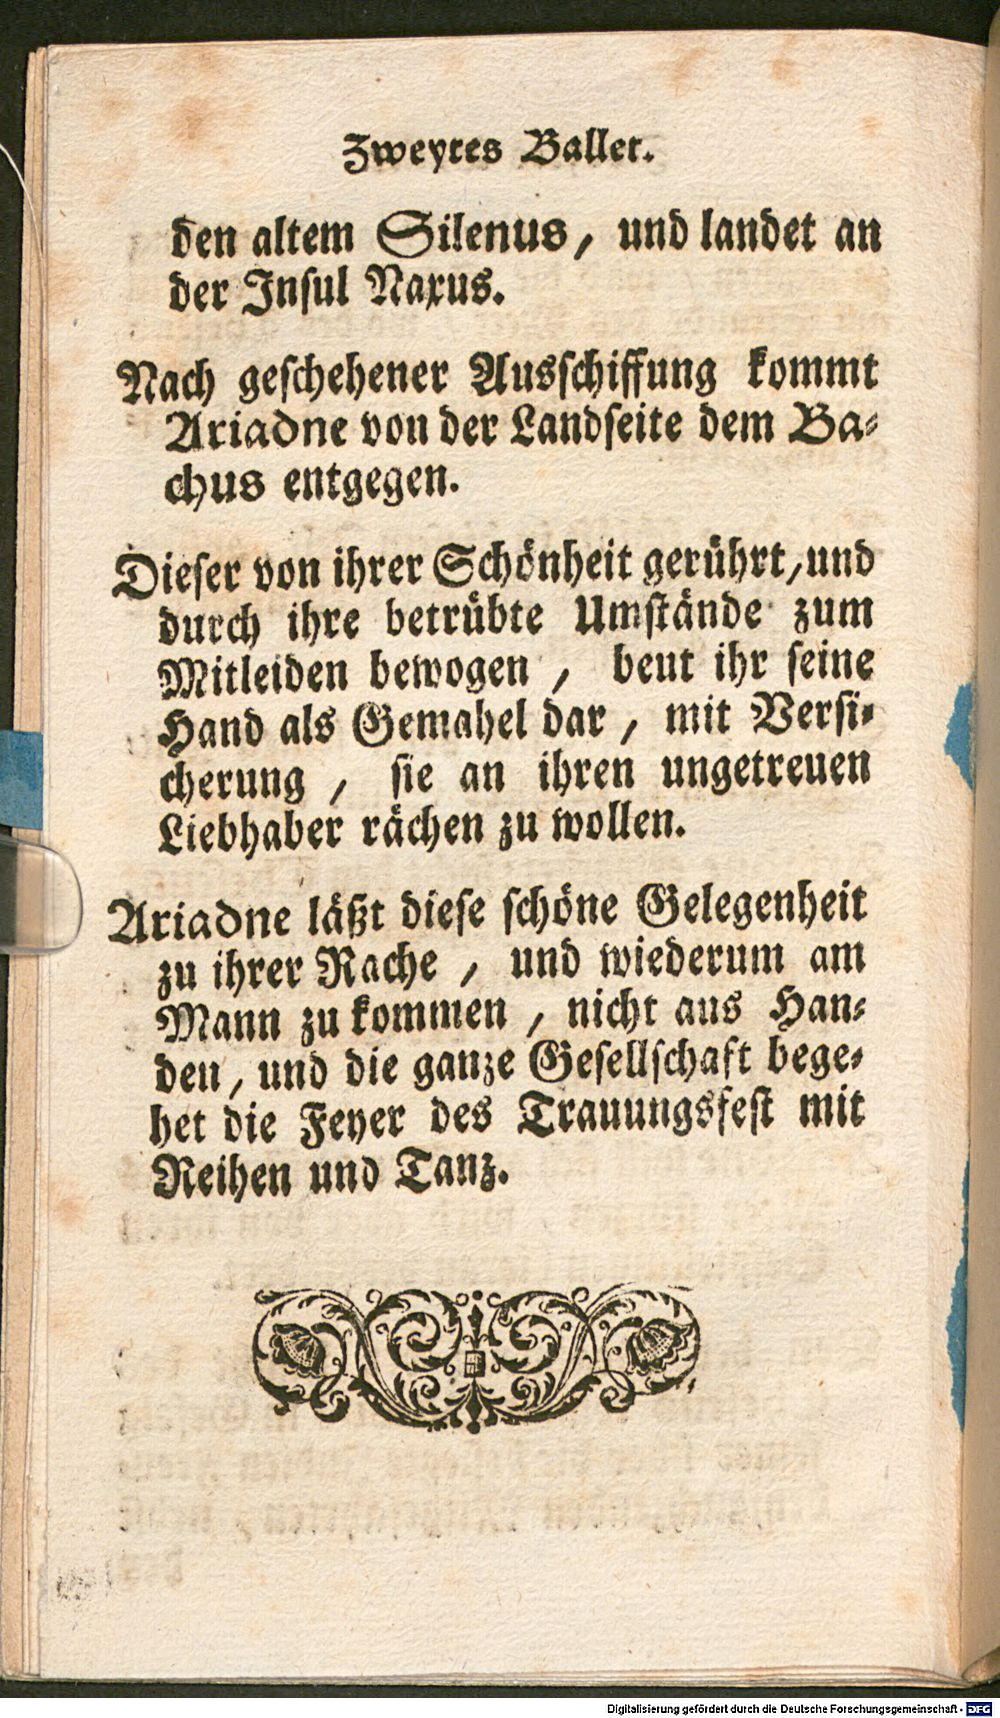 Zweytes Ballet.
den altem Silenus, und landet an
der Insul Naxus.
Nach geschehener Ausschiffung kommt
Ariadne von der Landseite dem Ba-
chus entgegen.
Dieser von ihrer Schönheit gerührt, und
durch ihre betrübte Umstände zum
Mitleiden bewogen, beut ihr seine
Hand als Gemahel dar, mit Versi-
cherung, sie an ihren ungetreuen
Liebhaber rächen zu wollen.
Ariadne läßt diese schöne Gelegenheit
zu ihrer Rache, und wiederum am
Mann zu kommen, nicht aus Han-
den, und die ganze Gesellschaft bege-
het die Feyer des Trauungsfest mit
Reihen und Tanz.
Digitalisierung gefördert durch die Deutsche Forschungsgemeinschaft - DFG